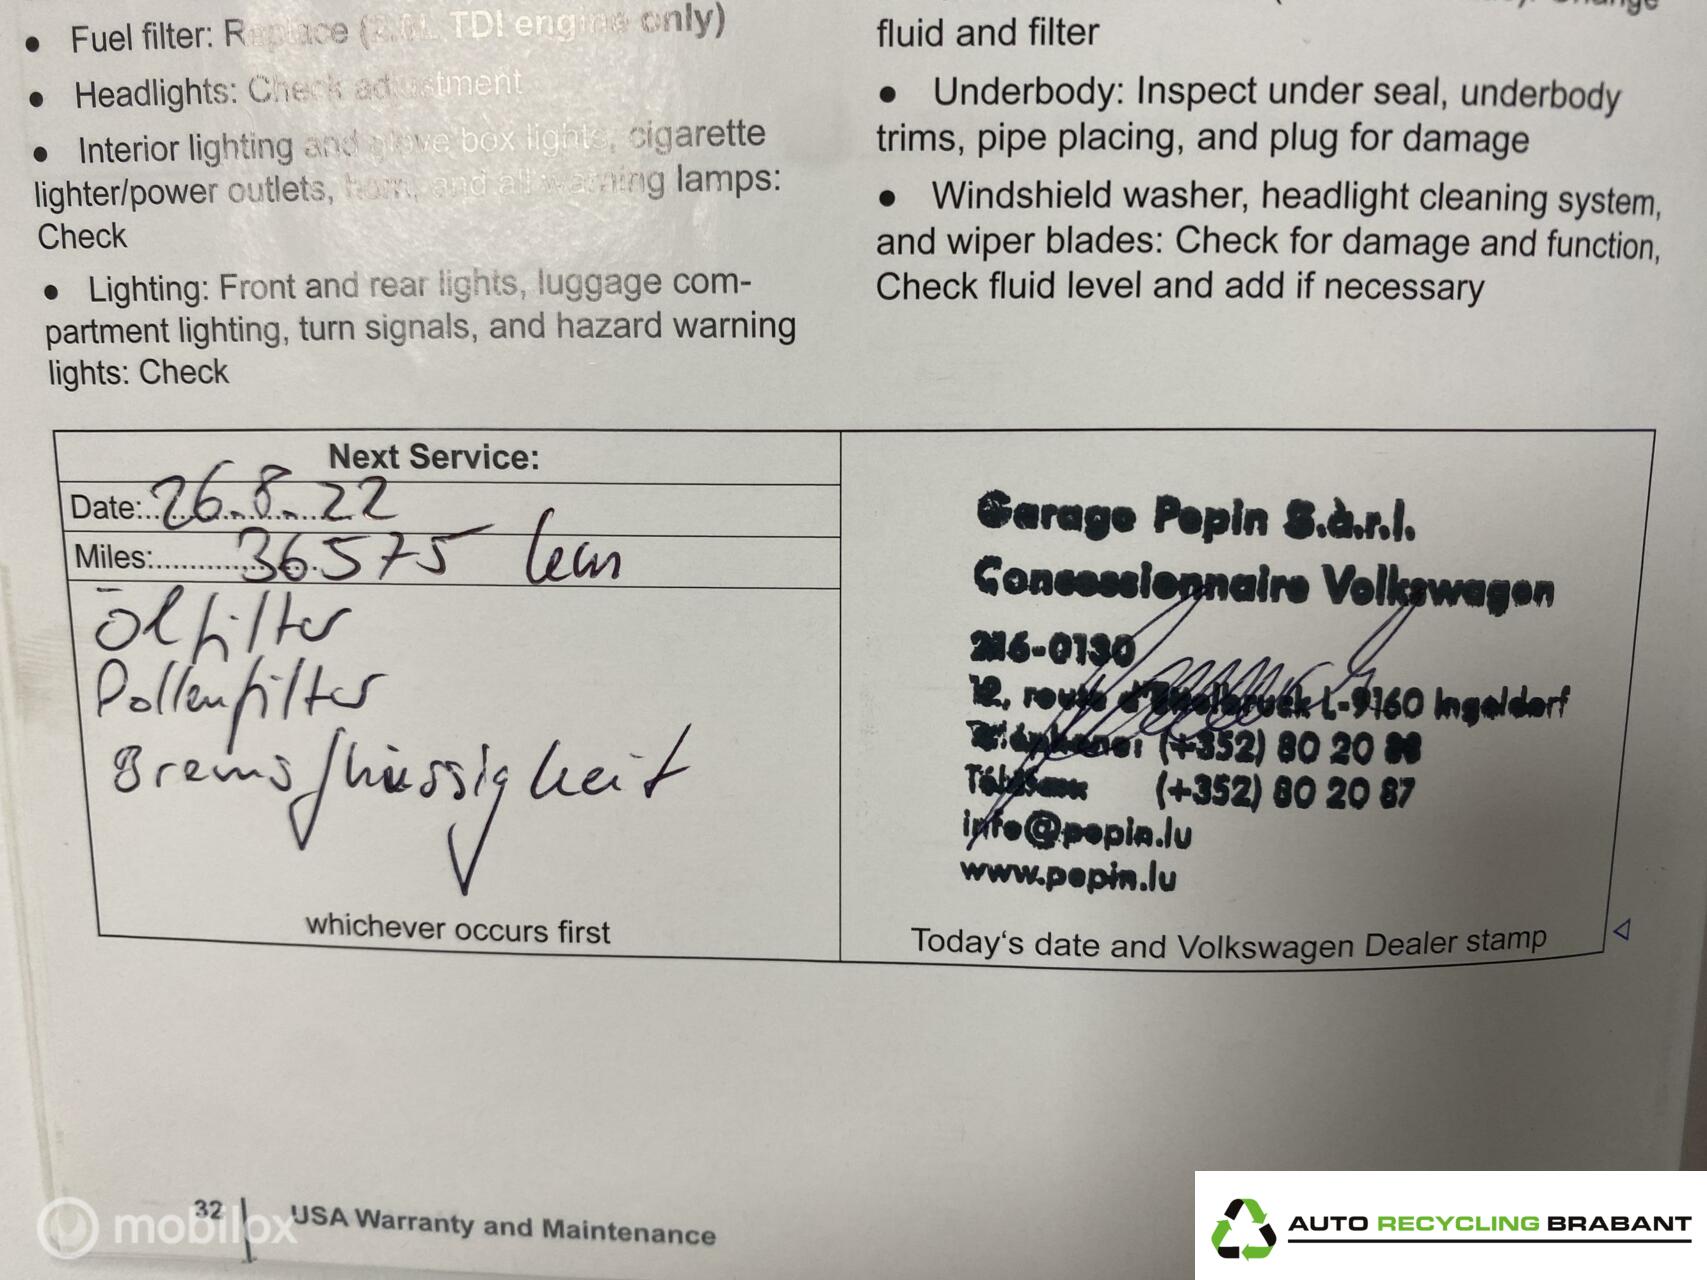 • Fuel filter: Replace (2.0L TDI engine only)
• Headlights: Check adjustment
• Interior lighting and glove box lights, cigarette
lighter/power outlets, horn, and all warning lamps:
Check
• Lighting: Front and rear lights, luggage com-
partment lighting, turn signals, and hazard warning
lights: Check
fluid and filter
• Underbody: Inspect under seal, underbody
trims, pipe placing, and plug for damage
• Windshield washer, headlight cleaning system,
and wiper blades: Check for damage and function,
Check fluid level and add if necessary
Next Service:
Date: 26.8.22
Miles: 36575 km
Ölfilter
Pollenfilter
Bremsflüssigkeit
whichever occurs first
Garage Pepin S.à.r.l.
Concessionnaire Volkswagen
216-0130
12, route d'Ettelbruck L-9160 Ingeldorf
Téléphone: (+352) 80 20
Téléfax (+352) 80 20 87
info@pepin.lu
www.pepin.lu
Today's date and Volkswagen Dealer stamp
32 USA Warranty and Maintenance
mobilox
AUTO RECYCLING BRABANT